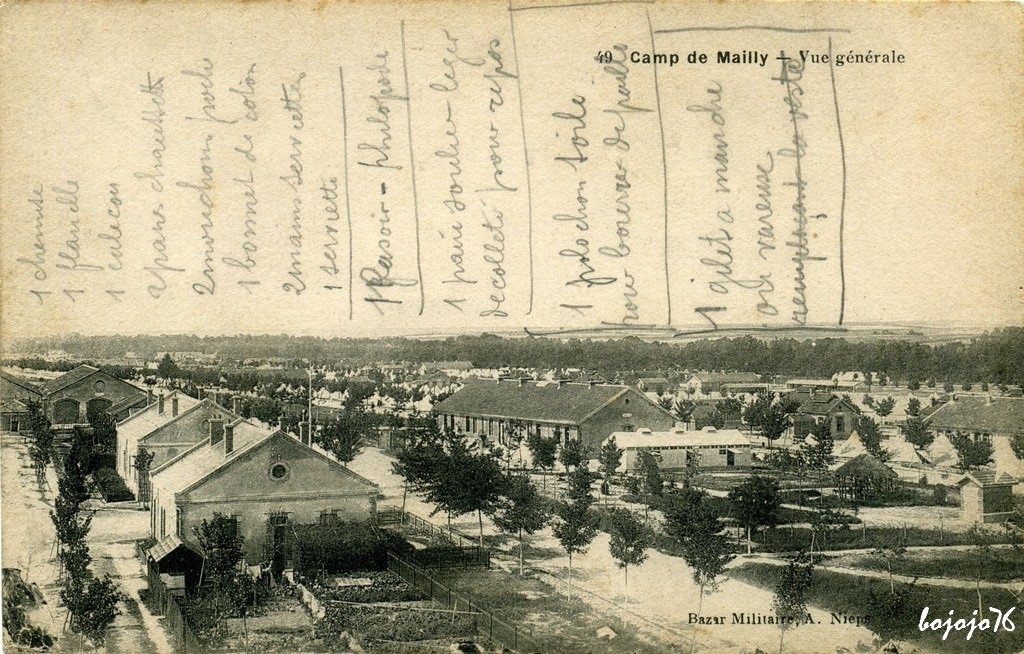 49 Camp de Mailly – Vue générale
1 chemise
1 flanelle
1 calecon
2 paires chaussettes
2 mouchoirs poche
1 bonnet de coton
2 mains serviettes
1 serviette
1 Rasoir - philopode
1 paire soulier leger
decolleté pour repos
1 polochon toile
pour bourrer de paille
1 gilet a manche
ou vareuse
remplaçant la veste
Bazar Militaire, A. Nieps
bojojo76